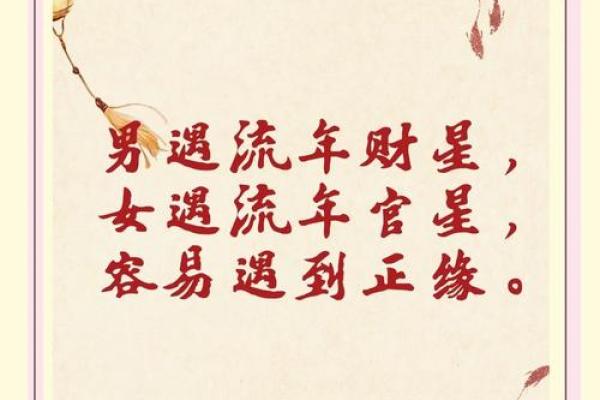 男遇流年财星，
女遇流年官星，
容易遇到正缘。